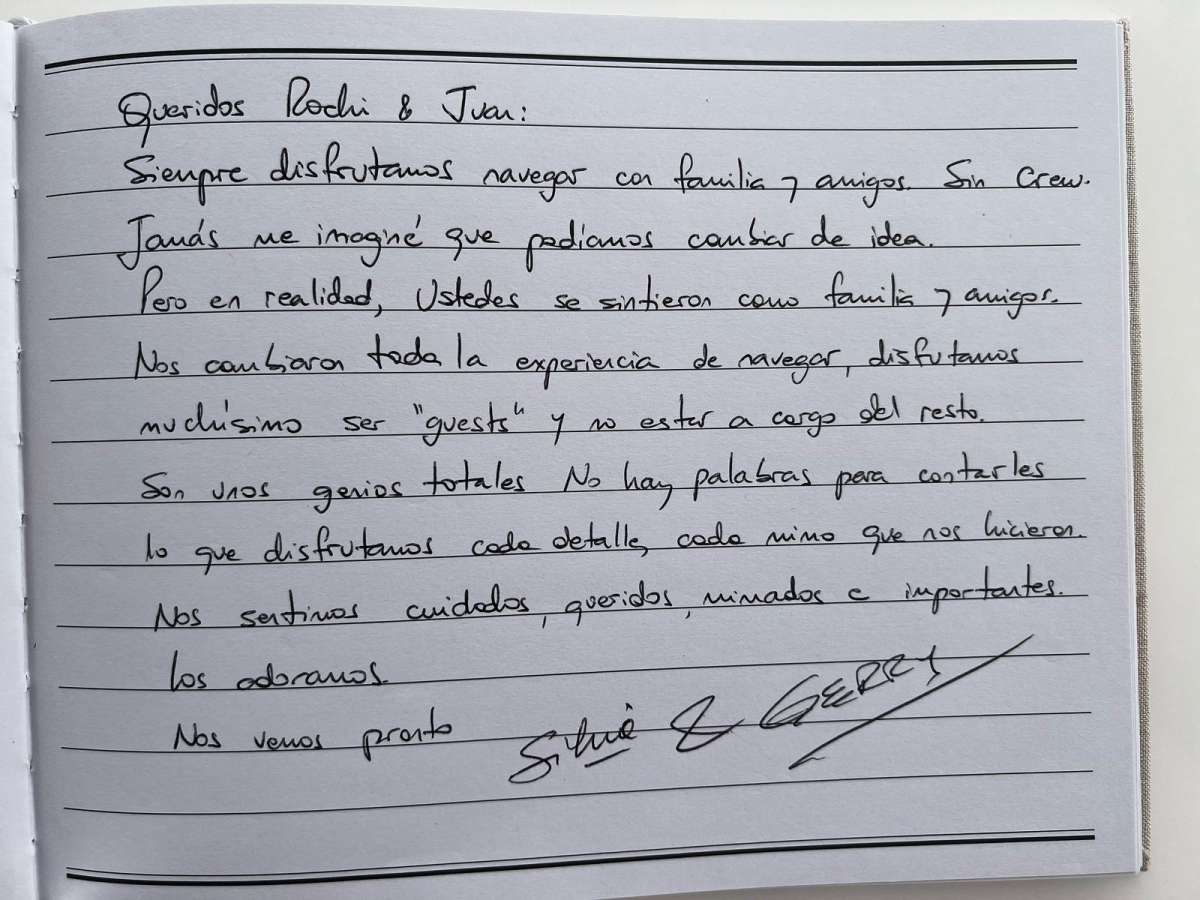 Queridos Rochi & Juan:
Siempre disfrutamos navegar con familia y amigos. Sin Crew.
Jamás me imaginé que podíamos cambiar de idea.
Pero en realidad, Ustedes se sintieron como familia y amigos.
Nos cambiaron toda la experiencia de navegar, disfutamos
muchísimo ser "guests" y no estar a cargo del resto.
Son unos genios totales No hay palabras para contarles
lo que disfrutamos cada detalle, cada mimo que nos hicieron.
Nos sentimos cuidados, queridos, mimados e importantes.
Los adoramos.
Nos vemos pronto
Silvia & GERRY